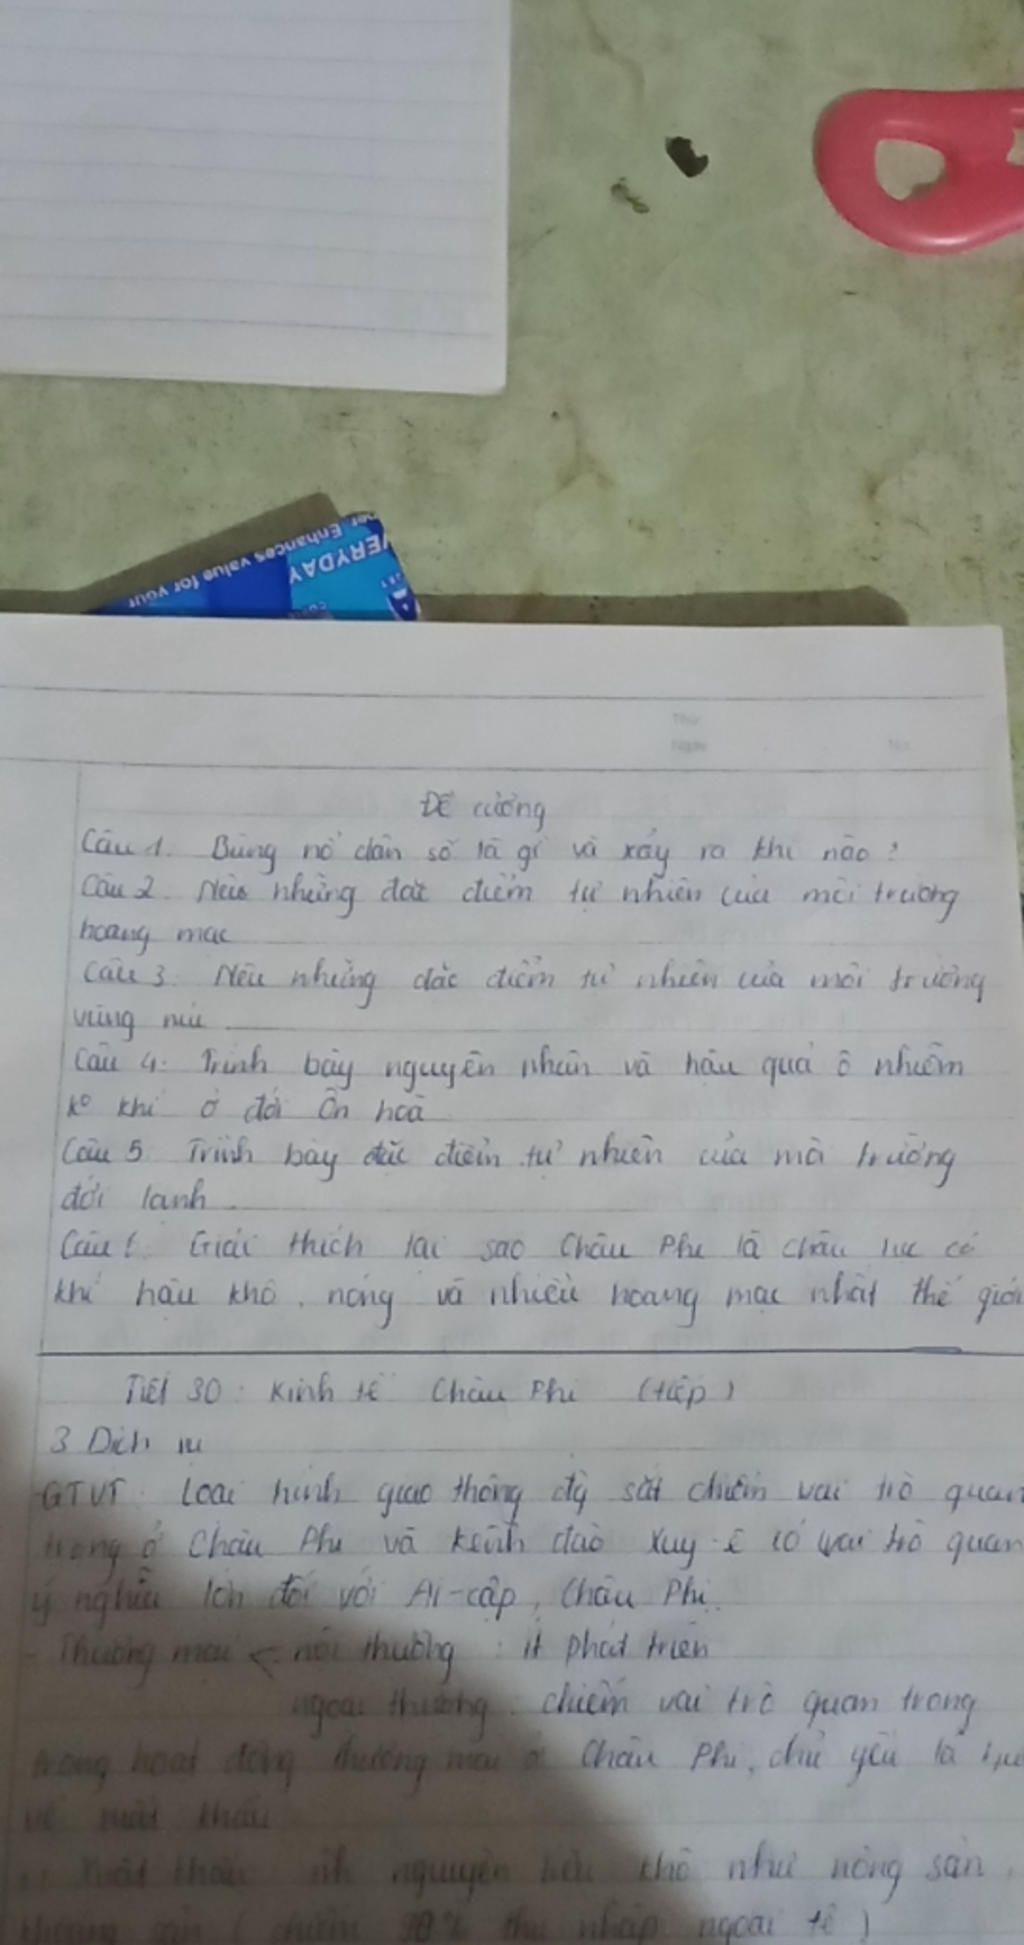 ner Enhances value for your
VERYDAY
Thứ
Ngày
No.
Đề cương
Câu 1. Bùng nổ dân số là gì và xảy ra khi nào?
Câu 2. Nêu những đặc điểm tự nhiên của môi trường
hoang mạc
Câu 3. Nêu những đặc điểm tự nhiên của môi trường
vùng núi
Câu 4. Trình bày nguyên nhân và hậu quả ô nhiễm
ko khí ở đới ôn hoà
Câu 5 Trình bày đặc điểm tự nhiên của môi trường
đới lạnh
Câu 6. Giải thích tại sao Châu Phi là châu lục có
khí hậu khô, nóng và nhiều hoang mạc nhất thế giới
Tiết 30: Kinh tế Châu Phi (tiếp)
3 Dịch vụ
GTVT: Loại hình giao thông đg sắt chiếm vai trò quan
trọng ở Châu Phi và kênh đào Xuy-ê có vai trò quan
ý nghĩa lớn đối với Ai-cập, Châu Phi.
- Thương mại < nội thương: ít phát triển
ngoại thương: chiếm vai trò quan trọng
trong hoạt động thương mại ở Châu Phi, chủ yếu là
về xuất khẩu
Xuất khẩu nguyên liệu thô như nông sản,
(chiếm 90% thu nhập ngoại tệ)